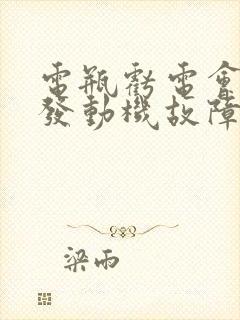 電瓶虧電會
發動機故障
梁雨